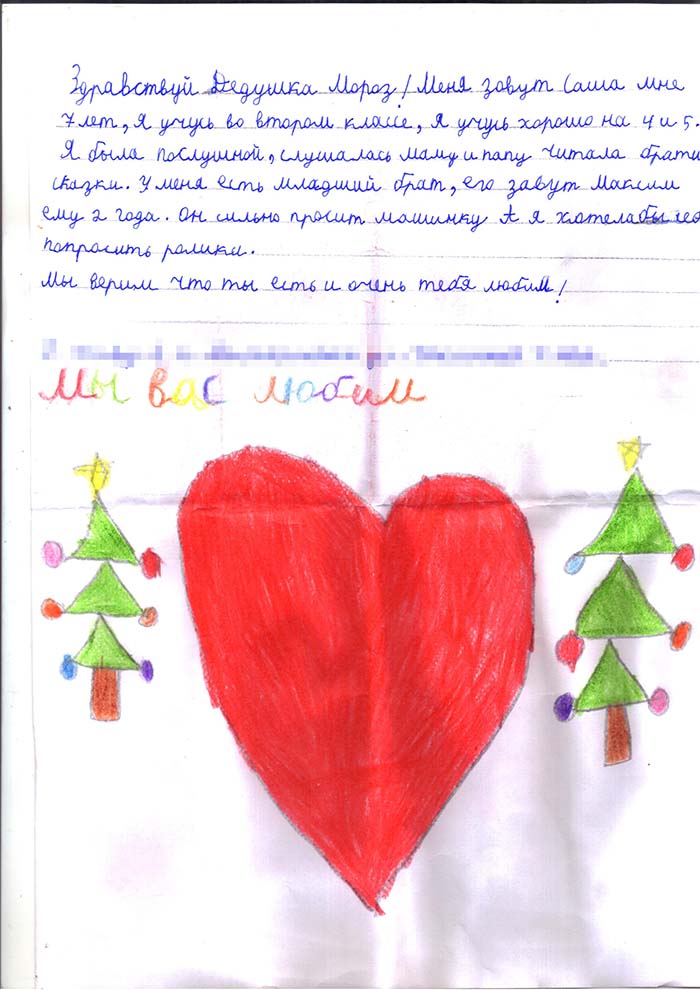 Здравствуй Дедушка Мороз! Меня зовут Саша мне
7 лет, я учусь во втором классе, я учусь хорошо на 4 и 5.
Я была послушной, слушалась маму и папу читала брати
сказки. У меня есть младший брат, его завут Максим
ему 2 года. Он сильно просит машинку А я хотела бы
попросить ролики.
Мы верим что ты есть и очень тебя любим!
Мы вас любим